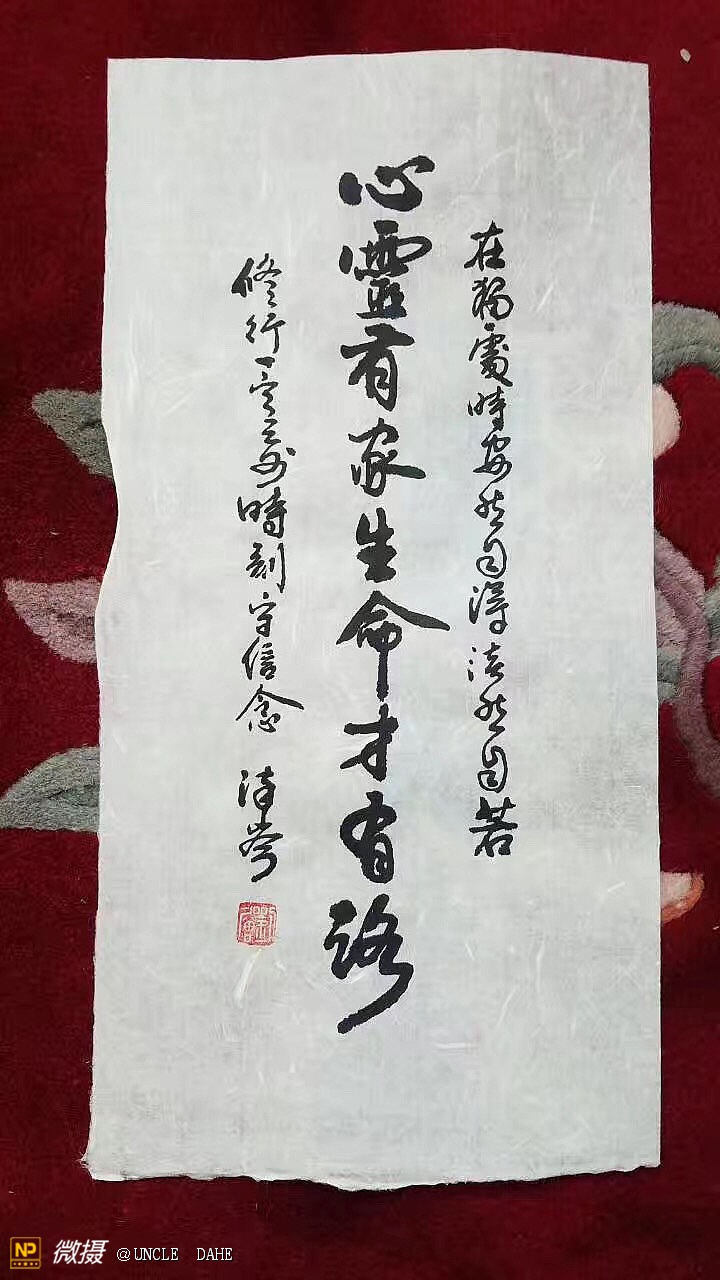 在獨處時安然自得淡然自若
心靈有家生命才有路
修行一定要時刻守信念
NP 微摄 @UNCLE DAHE